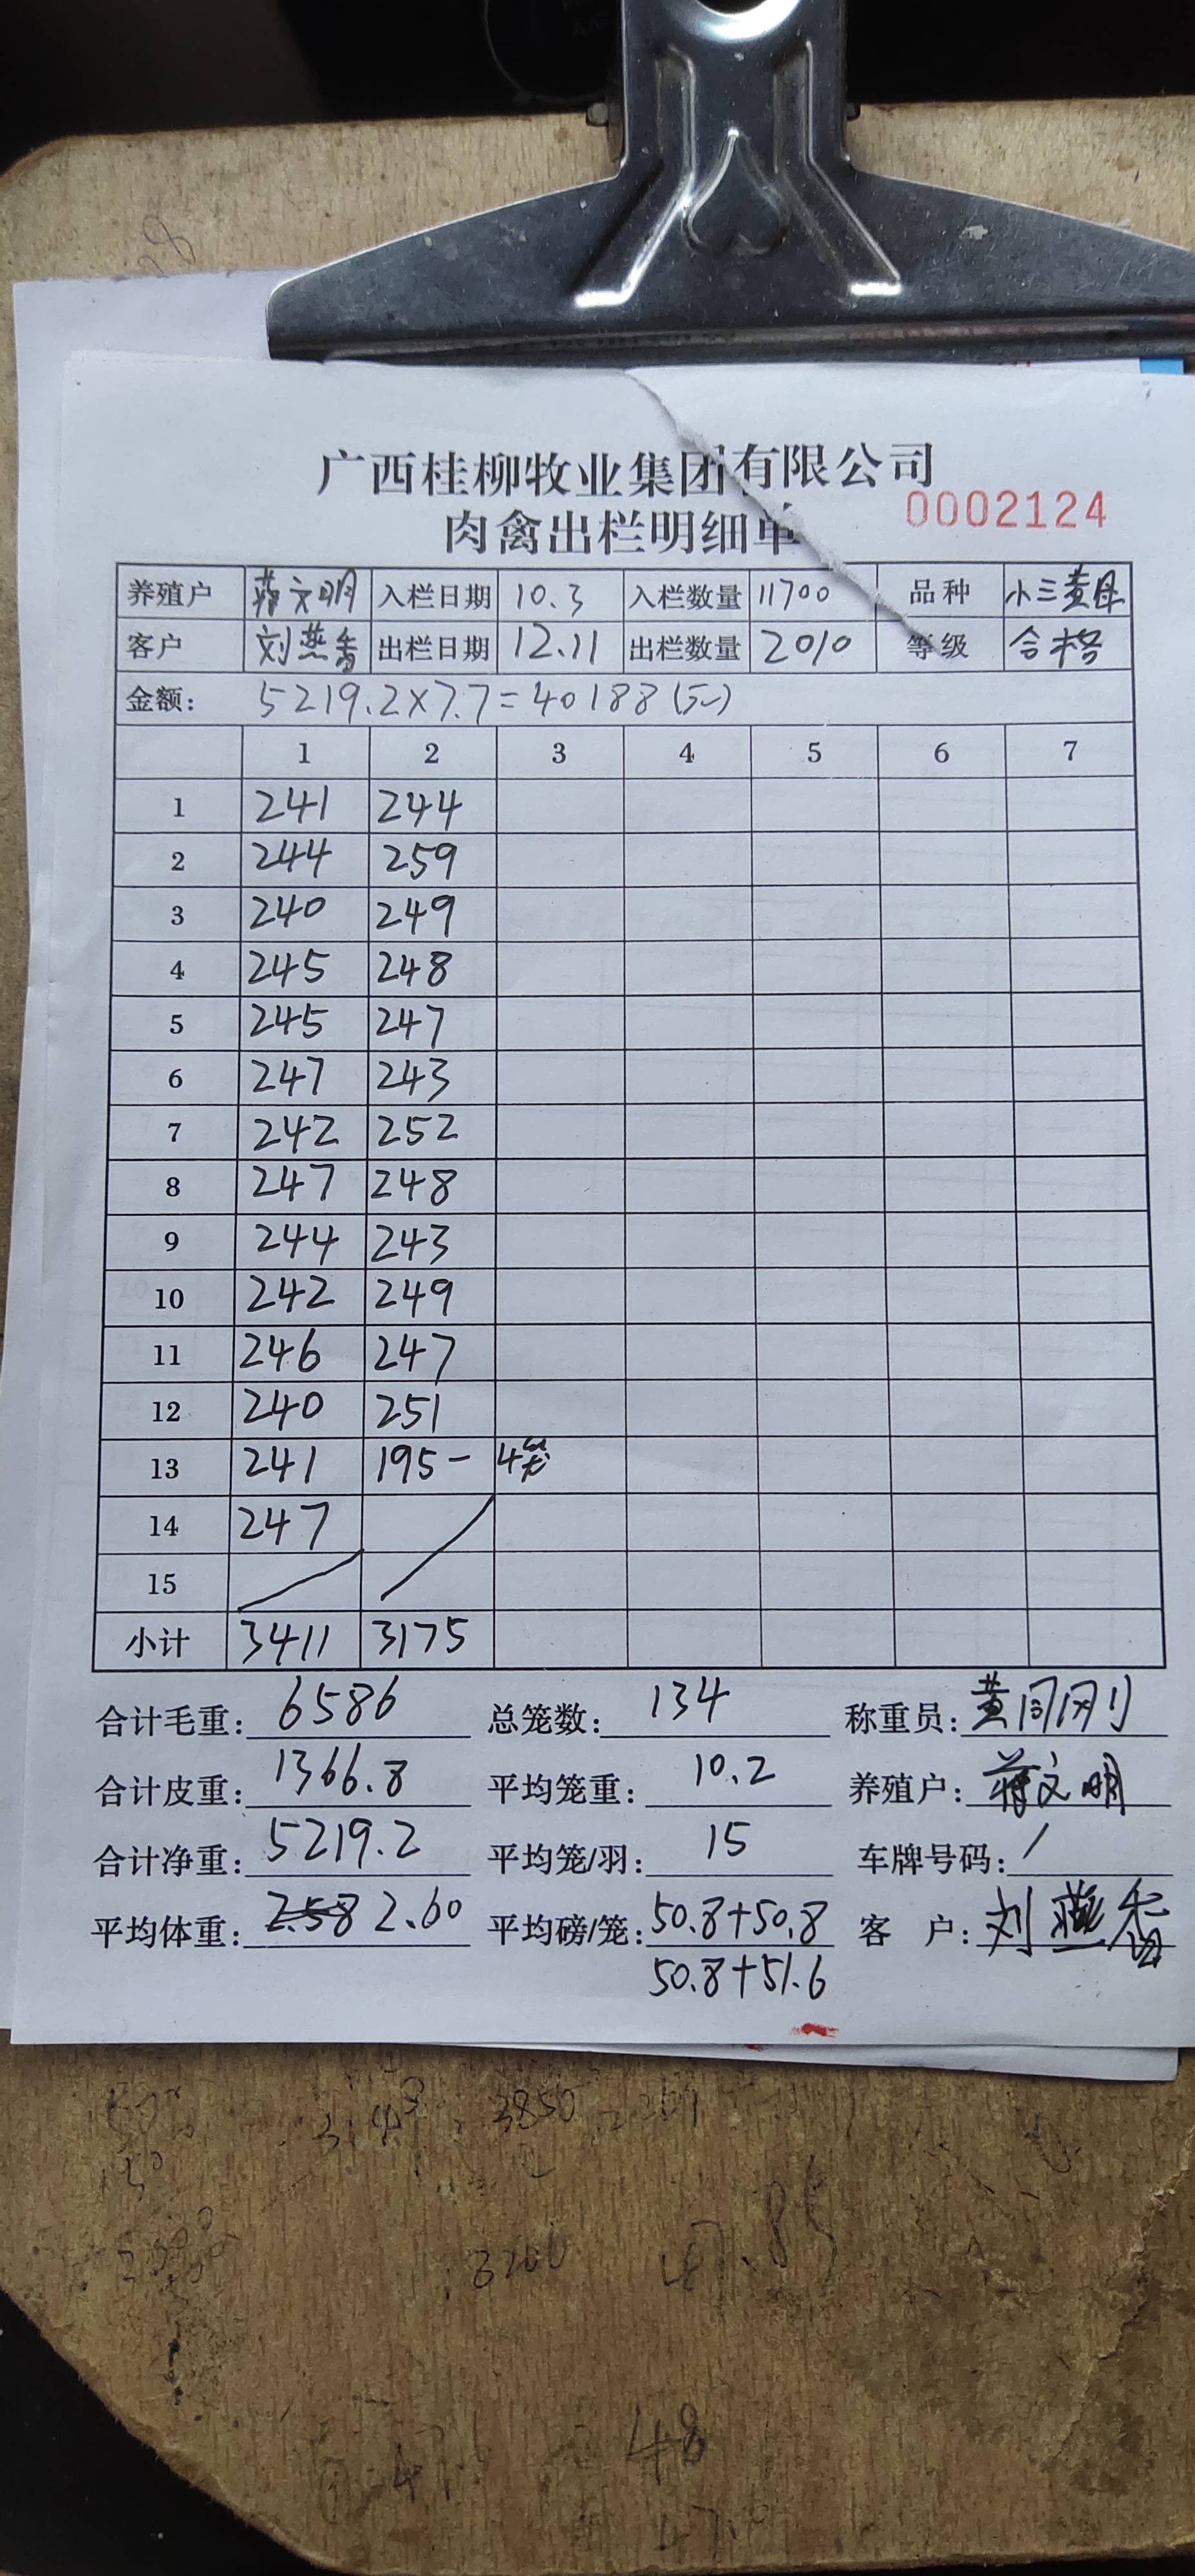 广西桂柳牧业集团有限公司
肉禽出栏明细单
0002124
养殖户 蒋文明 入栏日期 10.3 入栏数量 11700 品种 小三黄母
客户 刘燕香 出栏日期 12.11 出栏数量 2010 等级 合格
金额: 5219.2×7.7=40188(元)
1 2 3 4 5 6 7
1 241 244
2 244 259
3 240 249
4 245 248
5 245 247
6 247 243
7 242 252
8 247 248
9 244 243
10 242 249
11 246 247
12 240 251
13 241 195- 4笼
14 247
15
小计 3411 3175
合计毛重: 6586 总笼数: 134 称重员: 黄同刚
合计皮重: 1366.8 平均笼重: 10.2 养殖户: 蒋文明
合计净重: 5219.2 平均笼/羽: 15 车牌号码: /
平均体重: 2.58 2.60 平均磅/笼: 50.8+50.8 客户: 刘燕香
50.8+51.6
3850
3200
47.85
48